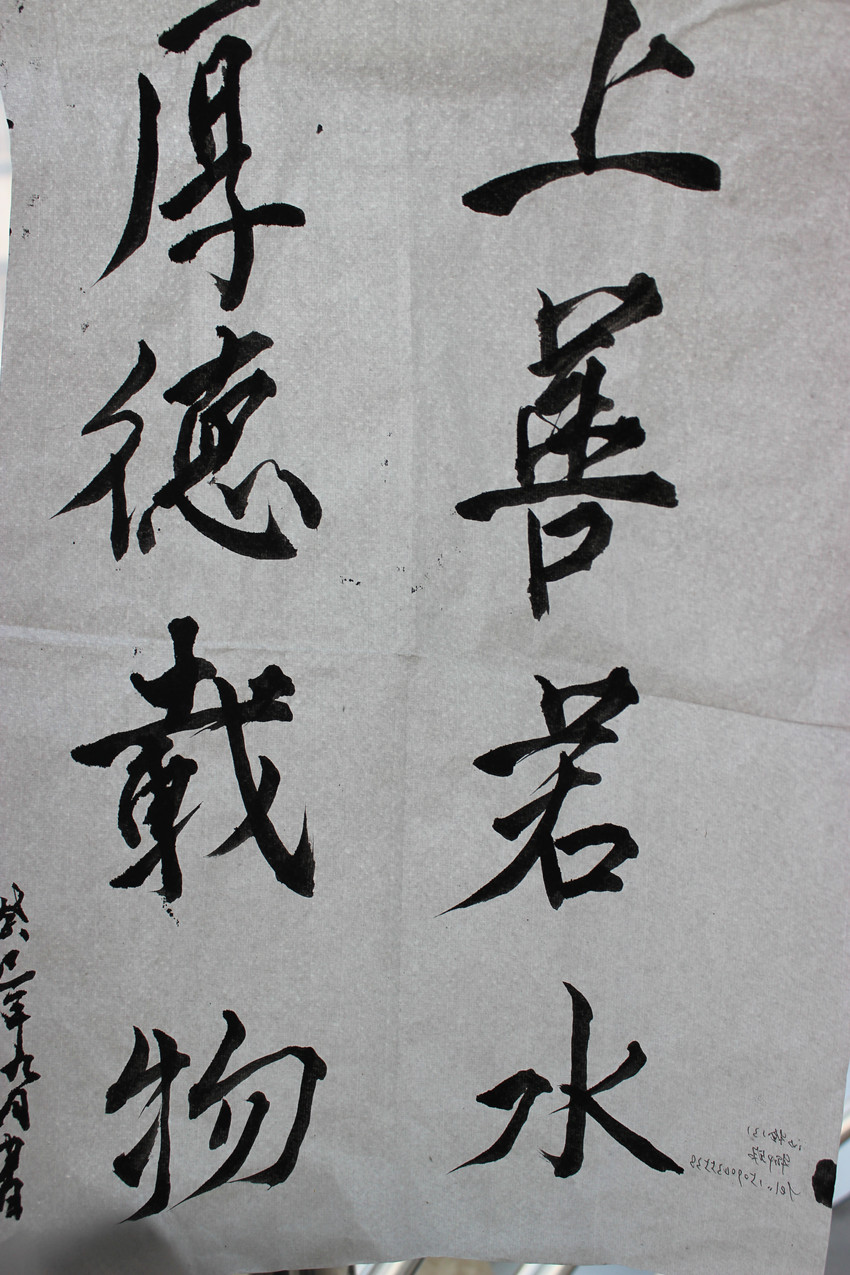 上善若水
厚德载物
癸巳年九月書